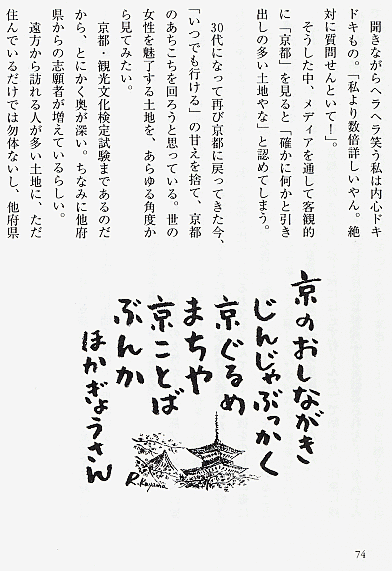 聞きながらヘラヘラ笑う私は内心ドキ
ドキもの。「私より数倍詳しいやん。絶
対に質問せんといて！」。
そうした中、メディアを通して客観的
に「京都」を見ると「確かに何かと引き
出しの多い土地やな」と認めてしまう。
30代になって再び京都に戻ってきた今、
「いつでも行ける」の甘えを捨て、京都
のあちこちを回ろうと思っている。世の
女性を魅了する土地を、あらゆる角度か
ら見てみたい。
京都・観光文化検定試験まであるのだ
から、とにかく奥が深い。ちなみに他府
県からの志願者が増えているらしい。
遠方から訪れる人が多い土地に、ただ
住んでいるだけでは勿体ないし、他府県
京のおしながき
じんじゃぶっかく
京ぐるめ
まちや
京ことば
ぶんか
ほかぎょうさん
R.Kayama
74